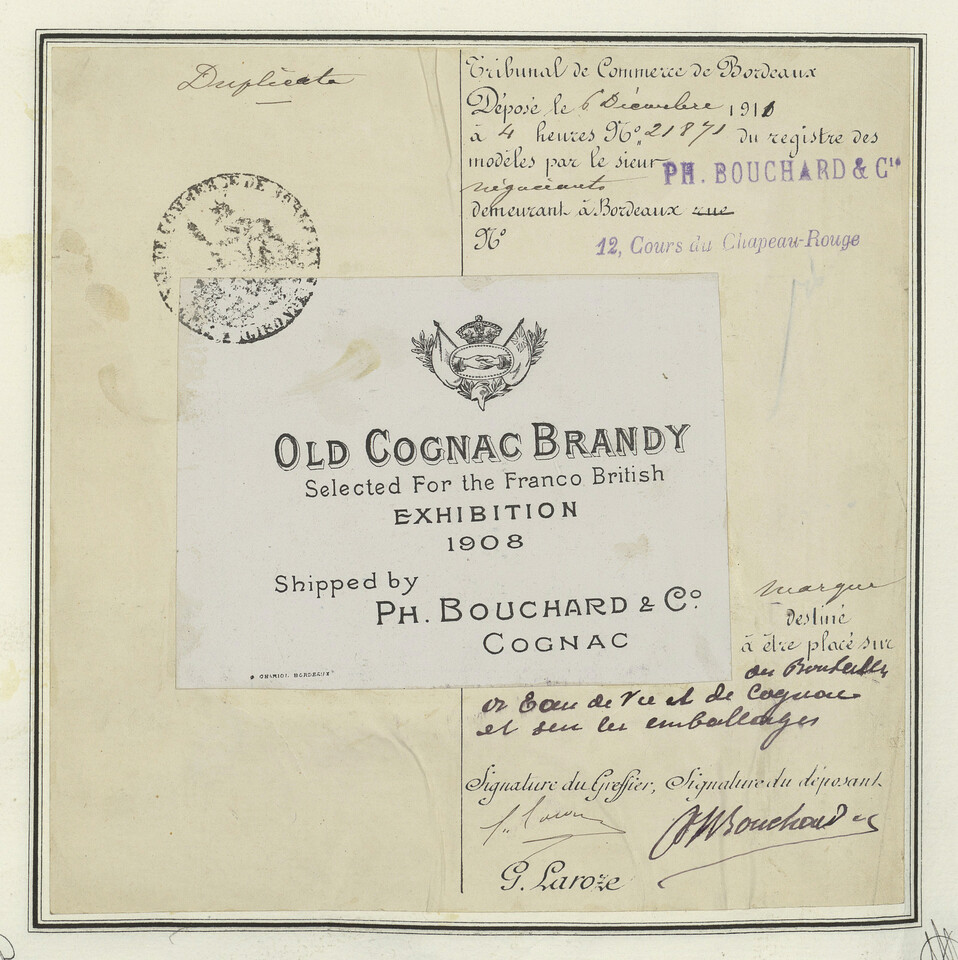 Duplicata
Tribunal de Commerce de Bordeaux
Déposé le 6 Décembre 1910
à 4 heures Nº 21871 du registre des
modèles par le sieur PH. BOUCHARD & Cie
négociants
demeurant à Bordeaux rue
Nº 12, Cours du Chapeau-Rouge
OLD COGNAC BRANDY
Selected For the Franco British
EXHIBITION
1908
Shipped by
PH. BOUCHARD & Co
COGNAC
BORDEAUX
marque
destiné
à être placé sur
des Bouteilles
Eau de Vie et de Cognac
et sur les emballages
Signature du Greffier, Signature du déposant
PH Bouchard
G. Laroze